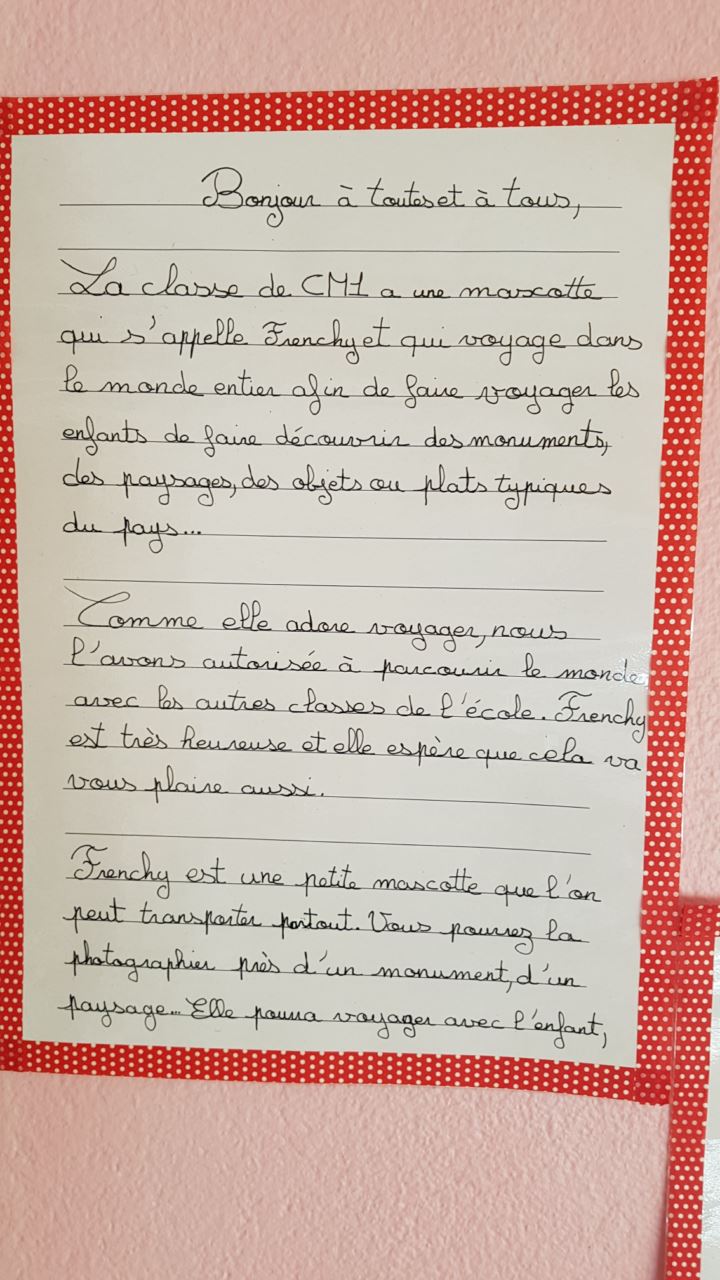 Bonjour à toutes et à tous,
La classe de CM1 a une mascotte
qui s'appelle Frenchy et qui voyage dans
le monde entier afin de faire voyager les
enfants de faire découvrir des monuments,
des paysages, des objets ou plats typiques
du pays...
Comme elle adore voyager, nous
l'avons autorisée à parcourir le monde
avec les autres classes de l'école. Frenchy
est très heureuse et elle espère que cela va
vous plaire aussi.
Frenchy est une petite mascotte que l'on
peut transporter partout. Vous pourrez la
photographier près d'un monument, d'un
paysage... Elle pourra voyager avec l'enfant,